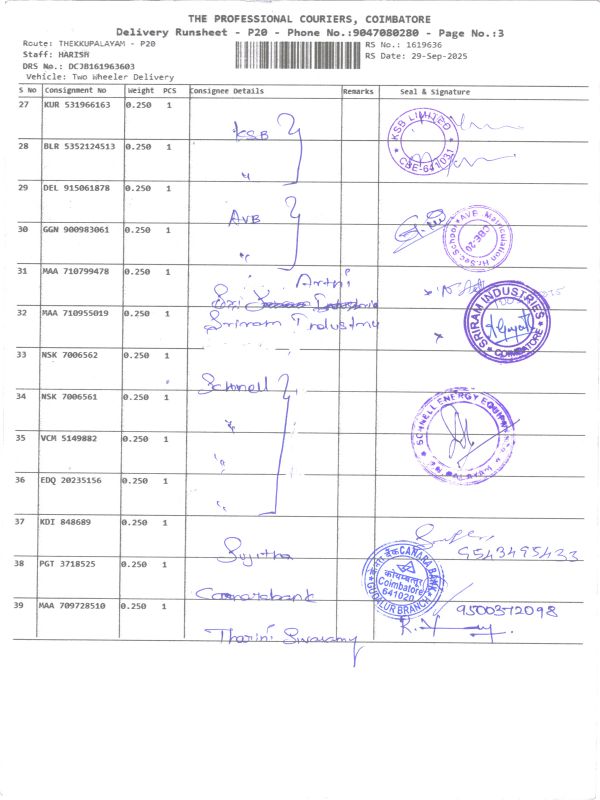 THE PROFESSIONAL COURIERS, COIMBATORE
Delivery Runsheet - P20 - Phone No.:9047080280 - Page No.:3
Route: THEKKUPALAYAM - P20
RS No.: 1619636
Staff: HARISH
RS Date: 29-Sep-2025
DRS No.: DCJB161963603
Vehicle: Two Wheeler Delivery
S No Consignment No Weight PCS Consignee Details Remarks Seal & Signature
27 KUR 531966163 0.250 1
KSB
KSB LIMITED
CBE-641031
28 BLR 5352124513 0.250 1
"
29 DEL 915061878 0.250 1
AVB
AVB Matriculation Hr.Sec.School
CBE-20
30 GGN 900983061 0.250 1
"
31 MAA 710799478 0.250 1
Arthi
32 MAA 710955019 0.250 1
Sriram Industry
SRIRAM INDUSTRIES
COIMBATORE
33 NSK 7006562 0.250 1
Schnell
34 NSK 7006561 0.250 1
"
SCHNELL ENERGY EQUIPMENTS
35 VCM 5149882 0.250 1
"
36 EDQ 20235156 0.250 1
"
37 KDI 848689 0.250 1
Sujitha
9543495433
38 PGT 3718525 0.250 1
Canarabank
केनरा बैंक CANARA BANK
कोयम्बत्तूर
Coimbatore
641020
GUDALUR BRANCH
39 MAA 709728510 0.250 1
9500372098
Tharini Swaramy